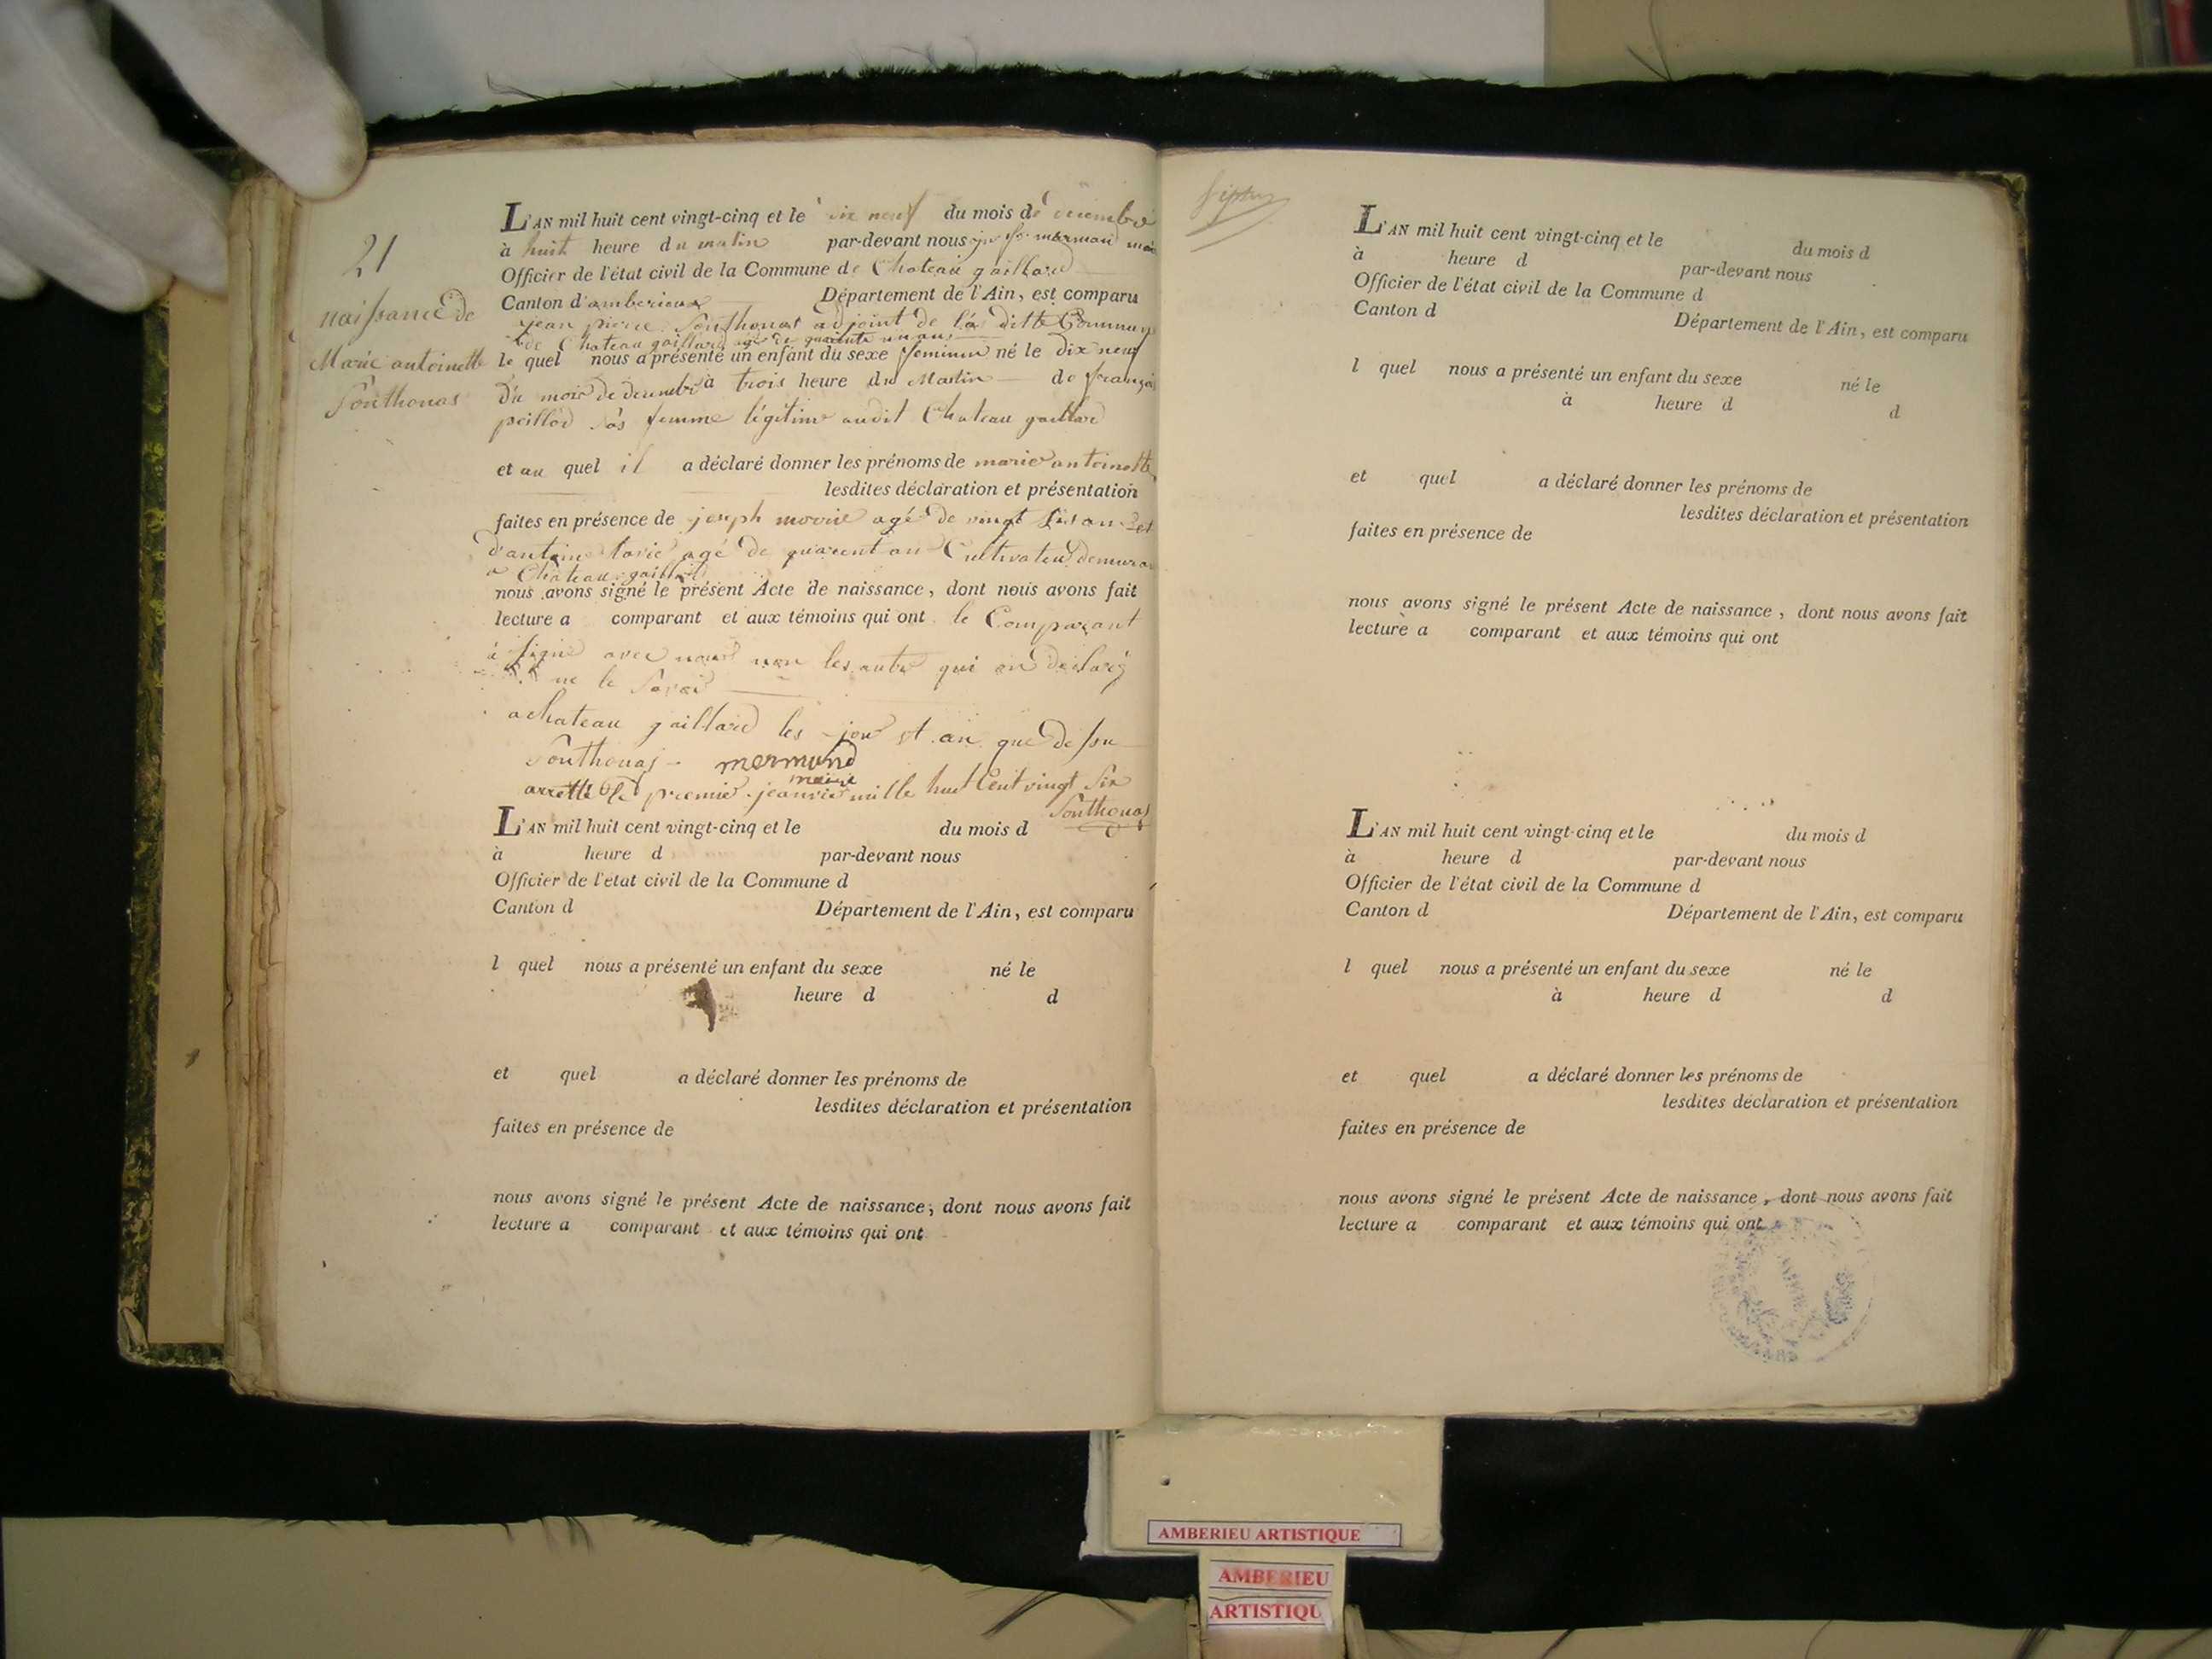 21
naissance de
Marie antoinette
Ponthonas
L'AN mil huit cent vingt-cinq et le dix neuf du mois de decembre
à huit heure du matin par-devant nous mermand
Officier de l'état civil de la Commune de Chateau gaillard
Canton d'amberieux Département de l'Ain, est comparu
jean pierre Ponthonas adjoint de la ditte Commune
de Chateau gaillard agé de quarante un ans
le quel nous a présenté un enfant du sexe feminin né le dix neuf
du mois de decembre à trois heure du Matin de
peillod sas femme légitime audit Chateau gaillard
et au quel il a déclaré donner les prénoms de marie antoinette
lesdites déclaration et présentation
faites en présence de joseph agé de vingt six an et
d'antoine agé de quarent an Cultivateur
a Chateau gaillard
nous avons signé le présent Acte de naissance, dont nous avons fait
lecture a comparant et aux témoins qui ont le Comparant
à signé avec nous non les autre qui on declaré
ne le Savoir
a chateau gaillard les jour et an que dessu
Ponthonas mermand
maire
arretté le premie jeanvie mille huit Cent vingt Six
Ponthonas
L'AN mil huit cent vingt-cinq et le du mois d
à heure d par-devant nous
Officier de l'etat civil de la Commune d
Canton d Département de l'Ain, est comparu
l quel nous a présenté un enfant du sexe né le
heure d d
et quel a déclaré donner les prénoms de
lesdites déclaration et présentation
faites en présence de
nous avons signé le présent Acte de naissance, dont nous avons fait
lecture a comparant et aux témoins qui ont
L'AN mil huit cent vingt-cinq et le du mois d
à heure d par-devant nous
Officier de l'état civil de la Commune d
Canton d Département de l'Ain, est comparu
l quel nous a présenté un enfant du sexe né le
à heure d d
et quel a déclaré donner les prénoms de
lesdites déclaration et présentation
faites en présence de
nous avons signé le présent Acte de naissance, dont nous avons fait
lecture a comparant et aux témoins qui ont
L'AN mil huit cent vingt-cinq et le du mois d
à heure d par-devant nous
Officier de l'état civil de la Commune d
Canton d Département de l'Ain, est comparu
l quel nous a présenté un enfant du sexe né le
à heure d d
et quel a déclaré donner les prénoms de
lesdites déclaration et présentation
faites en présence de
nous avons signé le présent Acte de naissance, dont nous avons fait
lecture a comparant et aux témoins qui ont
AMBERIEU ARTISTIQUE
AMBERIEU
ARTISTIQU